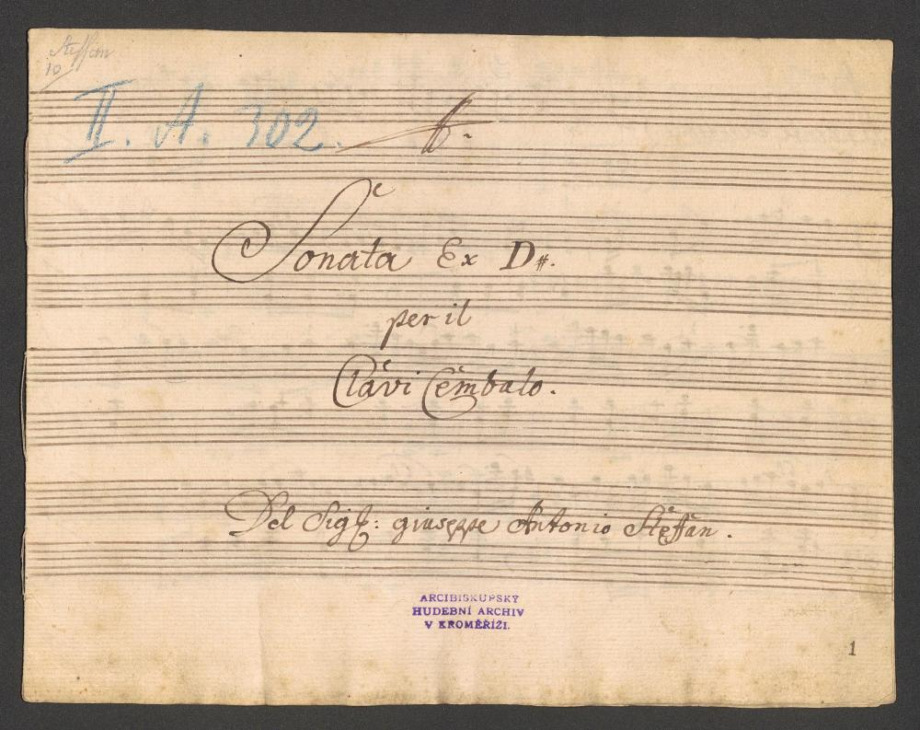 Steffan
10
II. A. 302.
Sonata Ex D#.
per il
Clavi Cembalo.
Del Sigr: giuseppe Antonio Steffan.
ARCIBISKUPSKÝ
HUDEBNÍ ARCHIV
V KROMĚŘÍŽI.
1